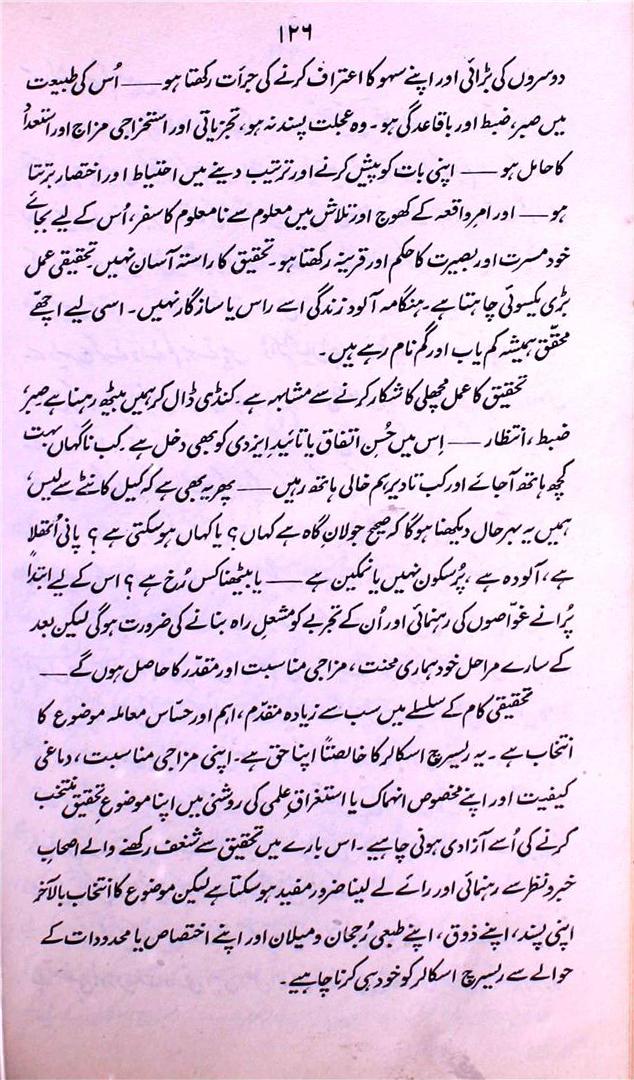 ۱۲۶
دوسروں کی بڑائی اور اپنے سہو کا اعتراف کرنے کی جرأت رکھتا ہو — اُس کی طبیعت
میں صبر، ضبط اور باقاعدگی ہو۔ وہ عجلت پسند نہ ہو، تجزیاتی اور استخراجی مزاج اور استعداد
کا حامل ہو — اپنی بات کو پیش کرنے اور ترتیب دینے میں احتیاط اور اختصار برتتا
ہو — اور امرِ واقعہ کے کھوج اور تلاش میں معلوم سے نامعلوم کا سفر، اُس کے لیے بجائے
خود مسرت اور بصیرت کا حکم اور قرینہ رکھتا ہو۔ تحقیق کا راستہ آسان نہیں۔ تحقیقی عمل
بڑی یکسوئی چاہتا ہے۔ ہنگامہ آلود زندگی اسے راس یا سازگار نہیں۔ اسی لیے اچھے
محقّق ہمیشہ کم یاب اور گم نام رہے ہیں۔
تحقیق کا عمل مچھلی کا شکار کرنے سے مشابہ ہے۔ کنڈی ڈال کر ہمیں بیٹھ رہنا ہے صبر،
ضبط، انتظار — اِس میں حُسنِ اتفاق یا تائیدِ ایزدی کو بھی دخل ہے۔ کب ناگہاں بہت
کچھ ہاتھ آ جائے اور کب تا دیر ہم خالی ہاتھ رہیں — پھر یہ بھی ہے کہ کیل کانٹے سے لیس،
ہمیں یہ بہرحال دیکھنا ہوگا کہ صحیح جولان گاہ ہے کہاں؟ یا کہاں ہو سکتی ہے؟ پانی اُتھلا
ہے، آلودہ ہے، پُرسکون نہیں یا نمکین ہے — یا بیٹھنا کس رُخ ہے؟ اس کے لیے ابتداً
پُرانے غوّاصوں کی رہنمائی اور اُن کے تجربے کو مشعلِ راہ بنانے کی ضرورت ہوگی لیکن بعد
کے سارے مراحل خود ہماری محنت، مزاجی مناسبت اور مقدّر کا حاصل ہوں گے —
تحقیقی کام کے سلسلے میں سب سے زیادہ مقدّم، اہم اور حسّاس معاملہ موضوع کا
انتخاب ہے۔ یہ ریسرچ اسکالر کا خالصتاً اپنا حق ہے۔ اپنی مزاجی مناسبت، دماغی
کیفیت اور اپنے مخصوص انہماک یا استغراقِ علمی کی روشنی میں اپنا موضوعِ تحقیق منتخب
کرنے کی اُسے آزادی ہونی چاہیے۔ اس بارے میں تحقیق سے شغف رکھنے والے اصحابِ
خبر و نظر سے رہنمائی اور رائے لے لینا ضرور مفید ہو سکتا ہے لیکن موضوع کا انتخاب بالآخر
اپنی پسند، اپنے ذوق، اپنے طبعی رُجحان و میلان اور اپنے اختصاص یا محدودات کے
حوالے سے ریسرچ اسکالر کو خود ہی کرنا چاہیے۔